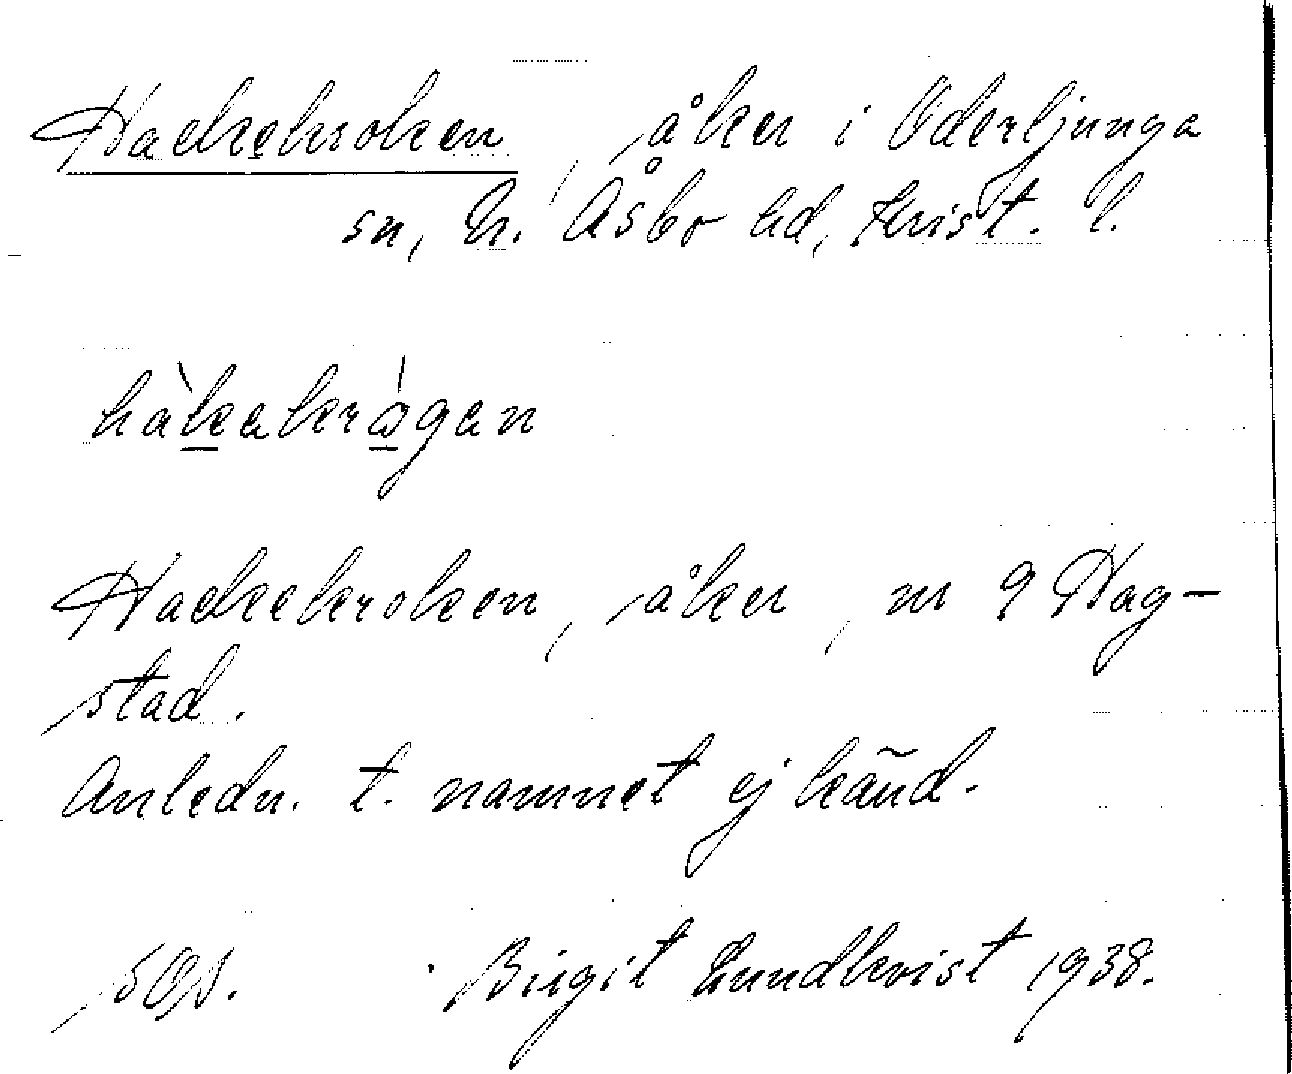 Hackekroken, åker i Oderljunga
sn, N. Åsbo hd, Krist. l.
hàkakrågan
Hackekroken, åker, nr 9 Hag-
stad.
Anledn. t. namnet ej känd.
Birgit Lundkvist 1938.